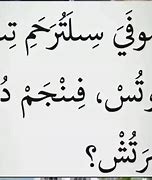 سوفَيَ سِلتُرَحَمِ تِس
وتُسْ، فِنْجَمْ دُ
رَتُشْ؟